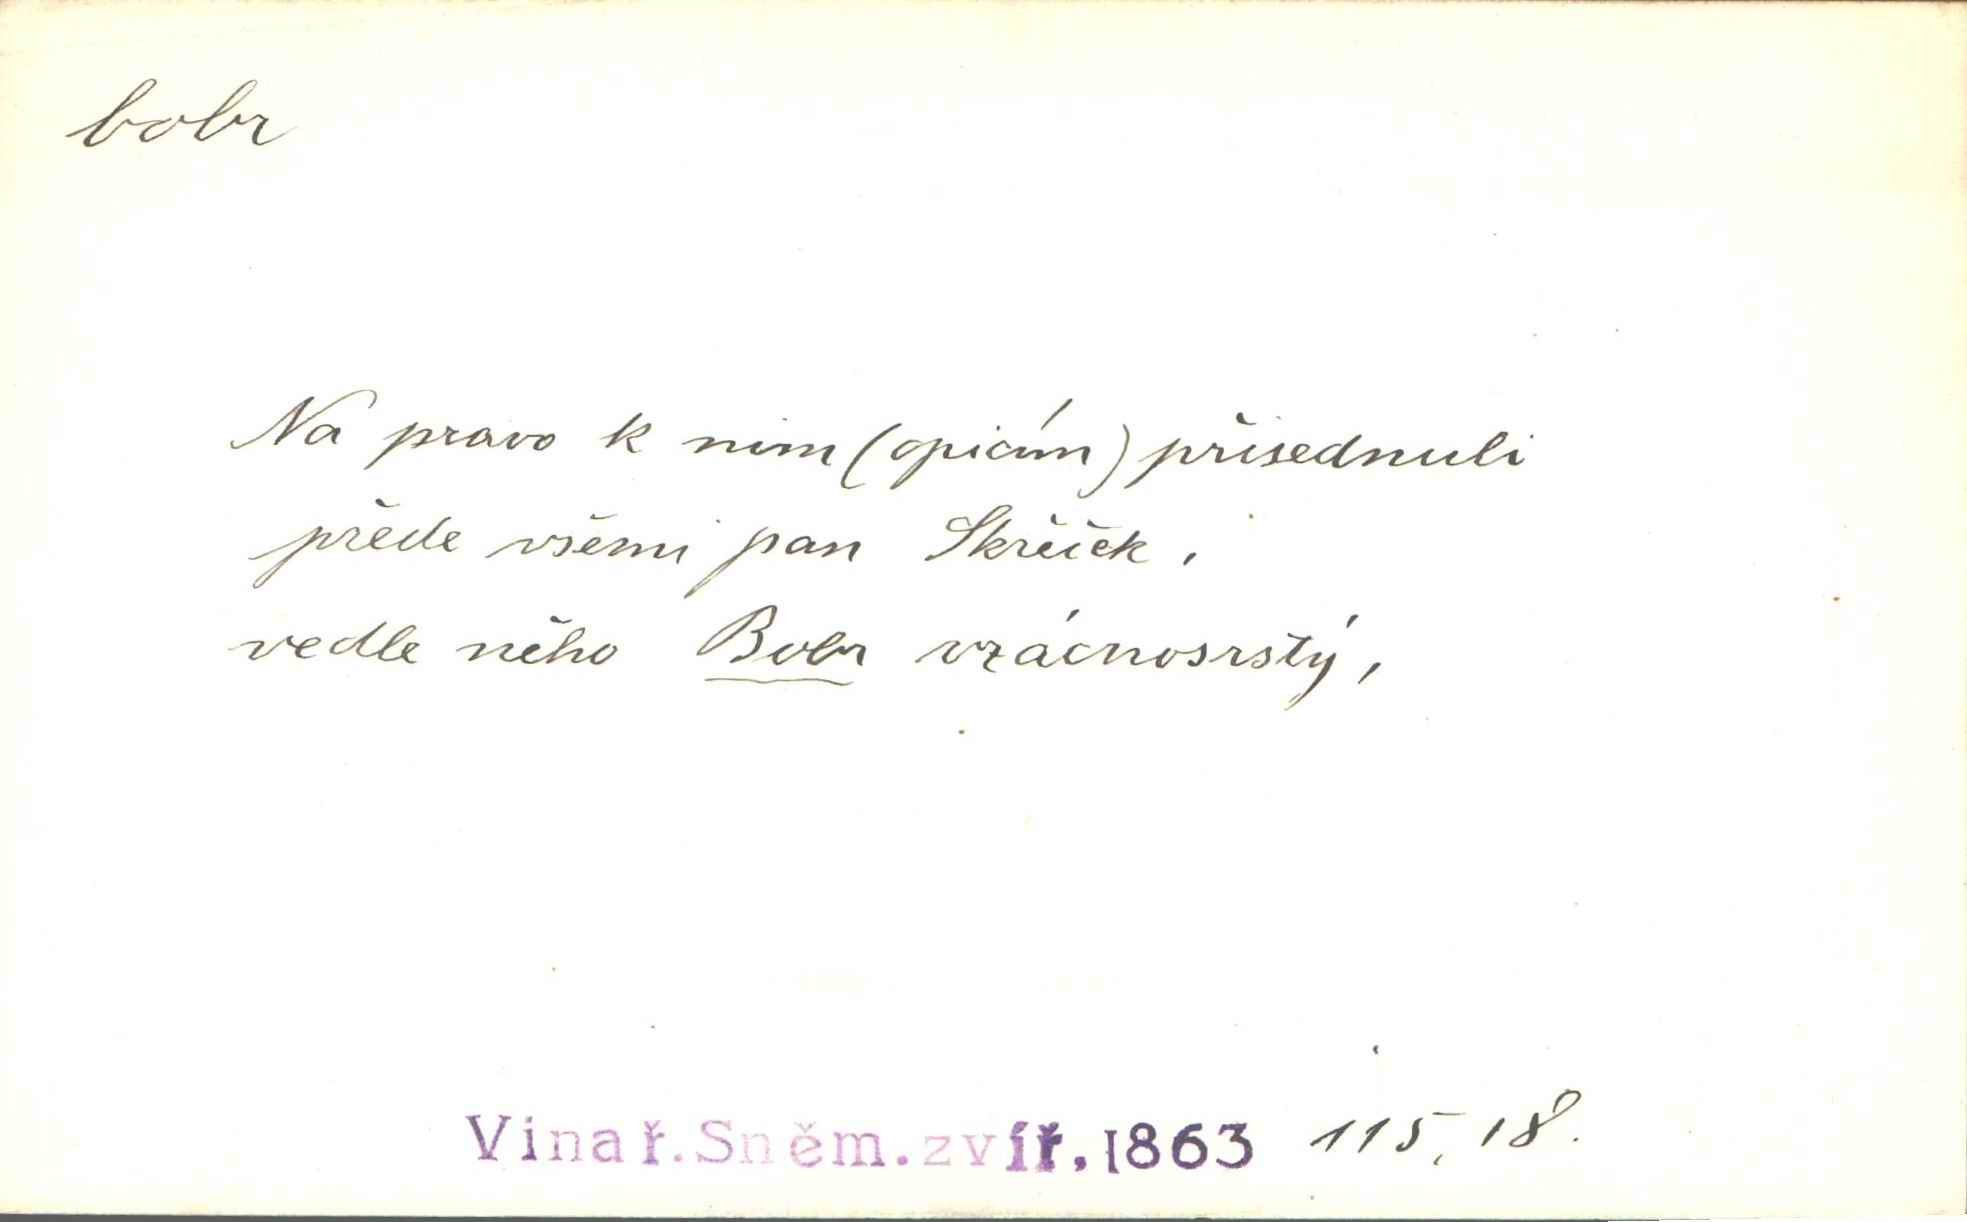 bobr
Na pravo k nim (opicím) přisednuli
přede všemi pan Skřeček,
vedle něho Bobr vzácnosrstý,
Vinař. Sněm. zvíř. 1863 115, 18.